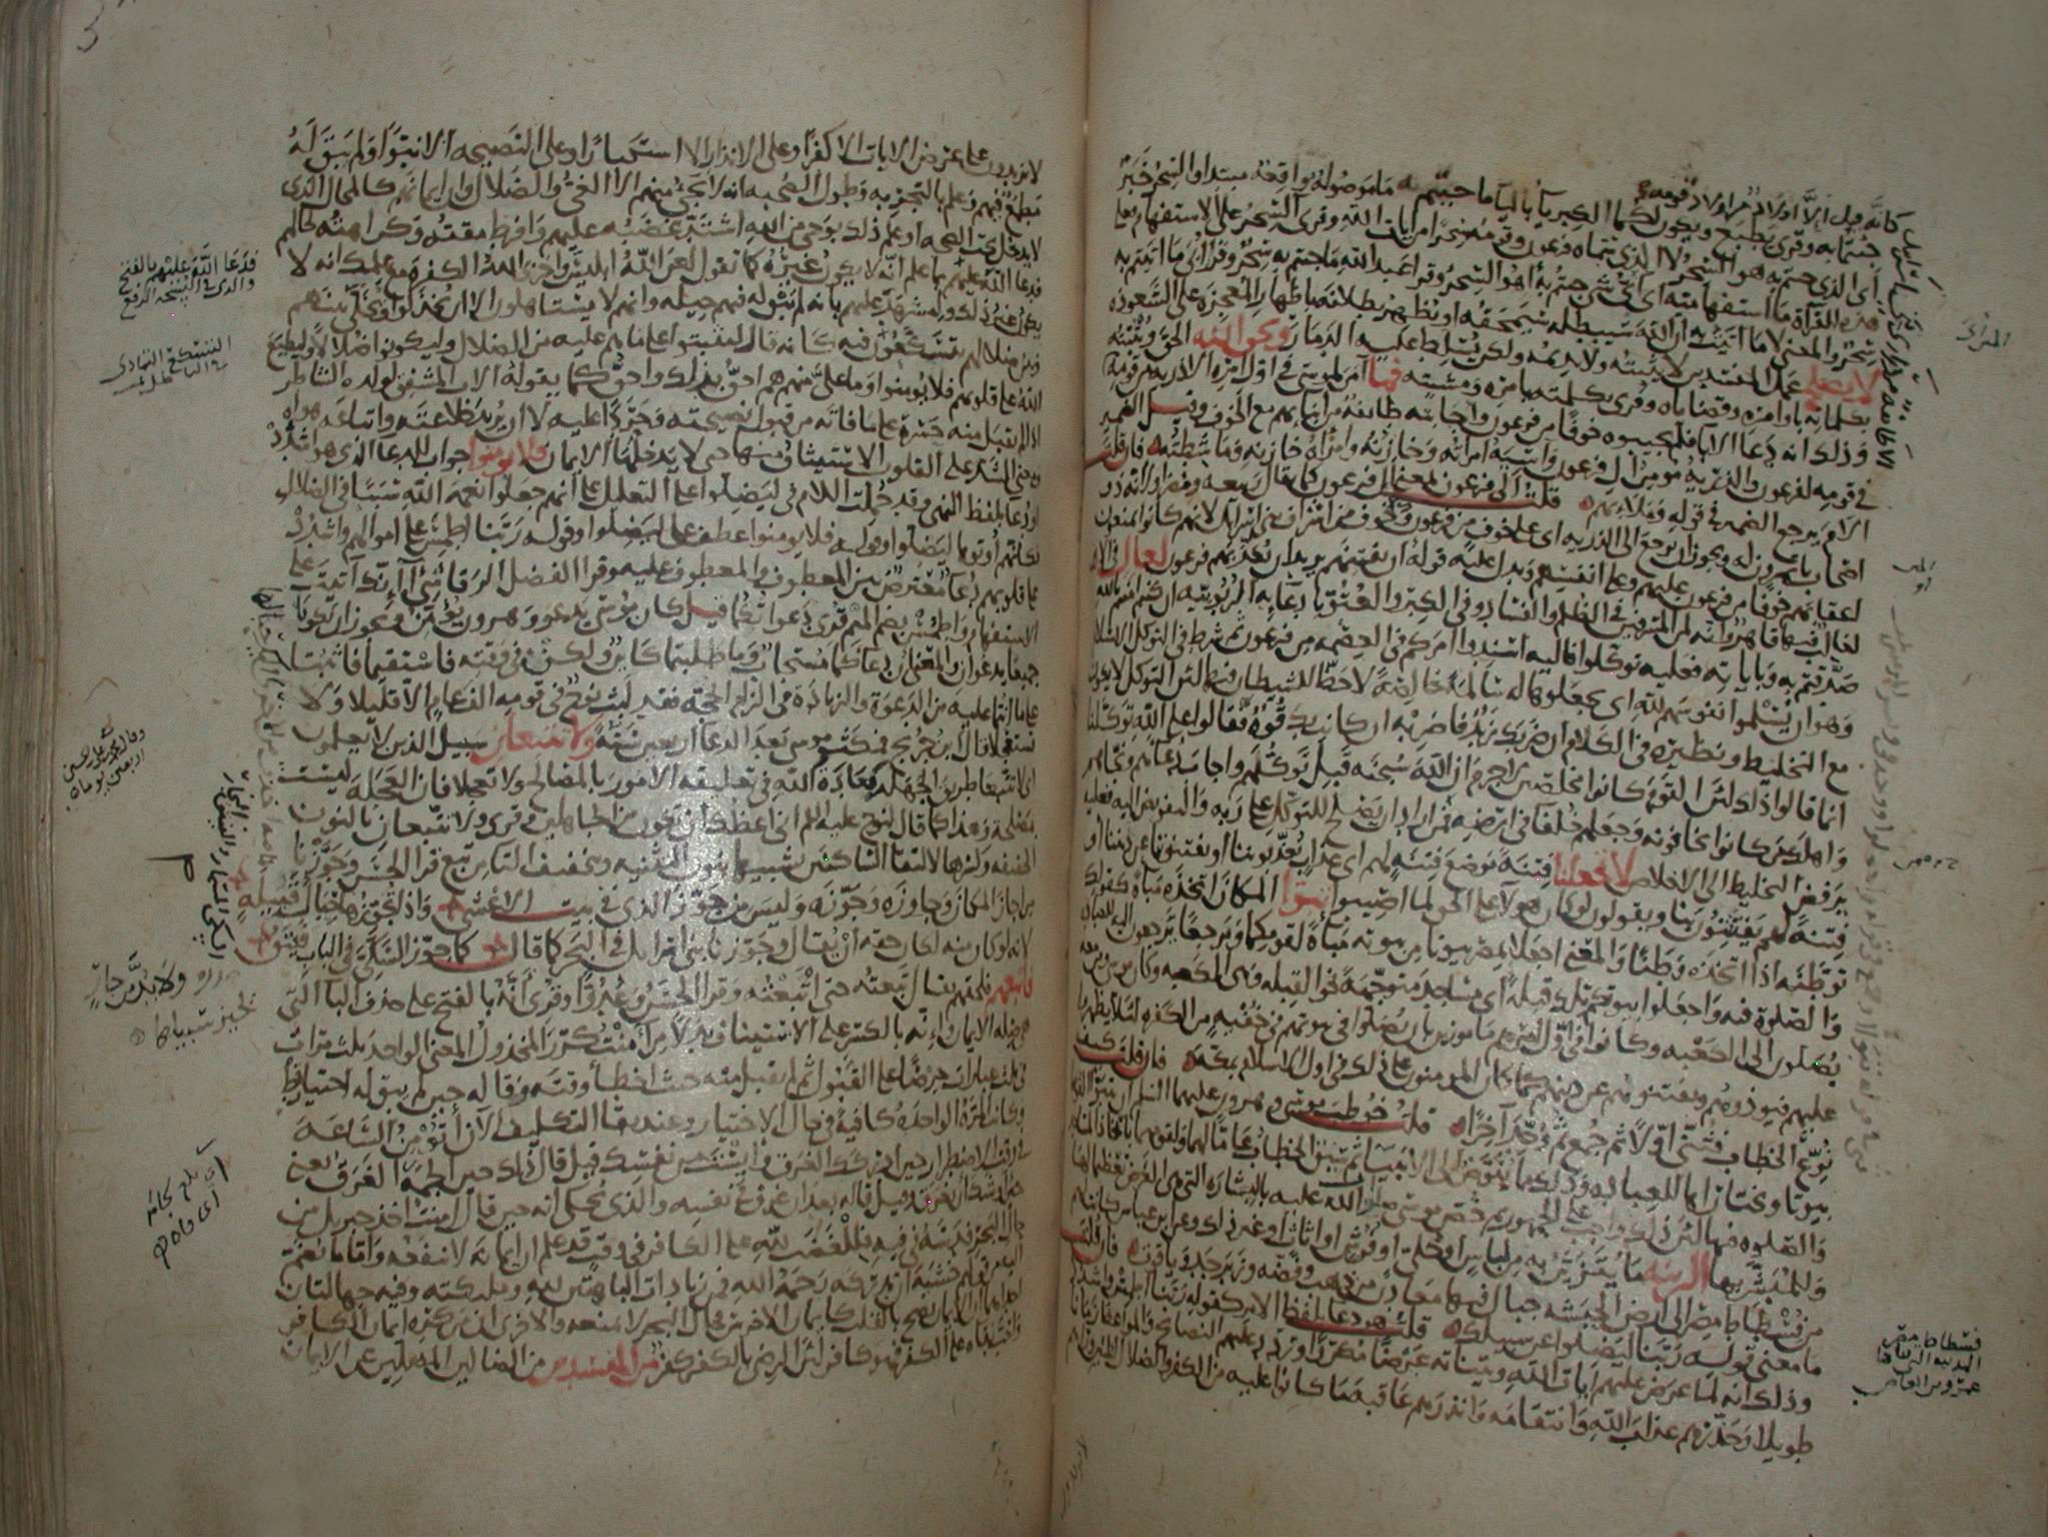 جئتما به وقرئ يطبع ويكون لكما الكبرياء بالياء ما جئتم به ما موصولة واقعة مبتدا والسحر خبر
اى الذى جئتم به هو السحر لا الذى سماه فرعون وقومه سحرا من ايات الله وقرئ آلسحر على الاستفهام فعلى
هذه القراة ما استفهامية اى اى شى جئتم به اهو السحر وقرا عبد الله ما جئتم به سحر وقرا ابى ما اتيتم به
سحر والمعنى لا ما اتيت به ان الله سيبطله سيمحقه او يظهر بطلانه باظهار المعجزة على الشعوذة
لا يصلح عمل المفسدين لا يثبته ولا يديمه ولكن يسلط عليه الدمار ويحق الله الحق ويثبته
بكلماته باوامره وقضاياه وقرى بكلمته بامره ومشيته فما آمن لموسى فى اول امره الا ذرية من قومه
وذلك انه دعا الابا فلم يجيبوه خوفا من فرعون واجابته طايفة من ابنايهم مع الخوف وقيل الضمير
فى قومه لفرعون والذرية مومن ال فرعون واسية امراته وخازنه وامراة خازنه وماشطته فان قلت
الام يرجع الضمير فى قوله وملايهم قلت الى فرعون بمعنى ال فرعون كما يقال ربيعة ومضر او لانه ذو
اصحاب ياتمرون له ويجوز ان يرجع الى الذرية اى على خوف من فرعون وخوف من اشراف بنى اسرائل لانهم كانوا يمنعون
اعقابهم خوفا من فرعون عليهم وعلى انفسهم ويدل عليه قوله ان يفتنهم يريد ان يعذبهم فرعون لعال فى الارض
لغالب فيها قاهر وانه لمن المسرفين فى الظلم والفساد وفى الكبر والعتو بادعايه الربوبية ان كنتم امنتم بالله
صدقتم به وباياته فعليه توكلوا فاليه اسندوا امركم فى العصمة من فرعون ثم شرط فى التوكل الاسلام
وهو ان يسلموا نفوسهم لله اى يجعلوها له سالمة خالصة لا حظ للشيطان فيها لان التوكل لا يكون
مع التخليط ونظيره فى الكلام ان ضربك زيد فاضربه ان كانت بك قوة فقالوا على الله توكلنا
انما قالوا ذلك لان القوم كانوا مخلصين لا جرم ان الله سبحنه قبل توكلهم واجاب دعاهم ونجاهم
واهلك من كانوا يخافونه وجعلهم خلفا فى ارضه فمن اراد ان يصلح للتوكل على ربه والتفويض اليه فعليه
برفض التخليط الى الاخلاص لا تجعلنا فتنة موضع فتنة لهم اى عذاب يعذبوننا او يفتنوننا عن ديننا او
فتنة لهم يفتتنون بنا ويقولون لو كان هولا على الحق لما اصيبوا تبوا المكان اتخذه مباة كقولك
توطنه اذا اتخذه وطنا والمعنى اجعلا بمصر بيوتا من بيوته مباة لقومكما ومرجعا يرجعون اليه للعبادة
والصلوة فيه واجعلوا بيوتكم تلك قبلة اى مساجد متوجهة نحو القبلة وهى الكعبة وكان موسى ومن معه
يصلون الى الكعبة وكانوا فى اول امرهم مامورين بان يصلوا فى بيوتهم فى خفية من الكفرة ليلا يظهروا
عليهم فيوذوهم ويفتنوهم عن دينهم كما كان المومنون على ذلك فى اول الاسلام بمكة فان قلت كيف
نوع الخطاب فثنى اولا ثم جمع ثم وحد آخرا قلت خوطب موسى وهرون عليهما السلم ان يتبوآ لقومهما
بيوتا ويختاراها للعبادة وذلك مما يفوض الى الانبيا ثم سيق الخطاب عاما لهما ولقومهما باتخاذ المساجد
والصلوة فيها لان ذلك واجب على الجمهور ثم خص موسى صلوات الله عليه بالبشارة التى هى الغرض تعظيما لها
وللمبشر بها الزينة ما يتزين به من لباس او حلى او فرش او اثاث او غير ذلك وعن ابن عباس كانت لهم
من فسطاط مصر الى ارض الحبشة جبال فيها معادن من ذهب وفضة وزبرجد وياقوت فان قلت
ما معنى قوله ربنا ليضلوا عن سبيلك قلت هو دعا بلفظ الامر كقوله ربنا اطمس واشدد
وذلك انه لما عرض عليهم ايات الله وبيناته عرضا مكررا وردد عليهم النصائح والمواعظ زمانا
طويلا وحذرهم عذاب الله وانتقامه وانذرهم عاقبة ما كانوا عليه من الكفر والضلال المبين ورآهم
فسطاط مصر
المدينة التى بناها
عمرو بن العاص
لا يزيدون على عرض الايات الا كفرا وعلى الانذار الا استكبارا وعلى النصيحة الا نبوا ولم يبق له
مطمع فيهم وعلم بالتجربة وطول الصحبة انه لا يجى منهم الا الغى والضلال وان ايمانهم كالمحال الذى
لا يدخل تحت الصحة او علم ذلك بوحى من الله اشتد غضبه عليهم وافرط مقته وكراهته لحالهم
فدعا الله عليهم بما علم انه لا يكون غيره كما تقول لعن الله ابليس واخزى الله الكفرة مع علمك انه لا
يكون غير ذلك وليشهد عليهم بانه لم يبق له فيهم حيلة وانهم لا يستاهلون الا ان يخذلوا ويخلى بينهم
وبين ضلالهم يتسكعون فيه كانه قال ليثبتوا على ما هم عليه من الضلال وليكونوا ضلالا وليطبع
الله على قلوبهم فلا يومنوا وما على منهم هم احق بذلك واحق كما يقول الاب المشفق لولده الشاطر
اذا لم يقبل منه حسرة على ما فاته من قبول نصيحته وحردا عليه لا ان يريد خلاعته واتباعه هواه
ومعنى الشد على القلوب الاستيثاق منها حتى لا يدخلها الايمان فلا يومنوا جواب للدعا الذى هو اشدد
او دعا بلفظ النهى وقد حملت اللام فى ليضلوا على التعليل على انهم جعلوا نعمة الله سببا فى الضلال
فكانهم اوتوها ليضلوا وقوله فلا يومنوا عطف على ليضلوا وقوله ربنا اطمس على اموالهم واشدد
على قلوبهم دعا معترض بين المعطوف والمعطوف عليه وقرا الفضل الرقاشى أانك آتيت على
الاستفهام واطمس بضم الميم قرى دعواتكما قيل كان موسى يدعو وهرون يومن ويجوز ان يكونا
جميعا يدعوان والمعنى ان دعاكما مستجاب وما طلبتما كائن ولكن فى وقته فاستقيما فاثبتا
على ما انتما عليه من الدعوة والزيادة فى الزام الحجة فقد لبث نوح فى قومه الف عام الا قليلا ولا
تستعجلا قال ابن جريج فمكث موسى بعد الدعا اربعين سنة ولا تتبعان سبيل الذين لا يعلمون
اى لا تتبعا طريق الجهلة بعادة الله فى تعليقه الامور بالمصالح ولا تعجلا فان العجلة ليست
بمصلحة وهذا كما قال لنوح عليه السلم انى اعظك ان تكون من الجاهلين وقرى ولا تتبعان بالنون
الخفيفة وكسرها لالتقا الساكنين تشبيها بنون التثنية وبتخفيف التا من تبع قرا الحسن وجوزنا
من اجاز المكان وجاوزه وجوزه وليس من جوز الذى فى بيت الاعشى واذا تجوزها حبال قبيلة
لانه لو كان منه لكان حقه ان يقال وجوزنا بنى اسرايل فى البحر كما قال كما جوز السكى فى الباب فيتق
فاتبعهم فلحقهم يقال تبعته حتى اتبعته وقرا الحسن وعدوا وقرى انه بالفتح على حذف البا التى
هى صلة الايمان وانه بالكسر على الاستيناف بدلا من آمنت كرر المخذول المعنى الواحد ثلث مرات
فى ثلث عبارات حرصا على القبول ثم لم يقبل منه حيث اخطا وقته وقاله حين لم يبق له اختيار قط
وكانت المرة الواحدة كافية فى حال الاختيار وعند بقا التكليف الآن اتومن الساعة
فى وقت الاضطرار حين ادركك الغرق وايست من نفسك قيل قال ذلك حين الجمه الغرق يعنى
حين اوشك ان يغرق وقيل قاله بعد ان غرق فى نفسه والذى يحكى انه حين قال امنت اخذ جبريل من
حال البحر فدسه فى فيه فللغضب لله على الكافر فى وقت قد علم ان ايمانه لا ينفعه واما ما يضم
اليه من قولهم خشية ان تدركه رحمة الله فمن زيادات الباهتين لله وملئكته وفيه جهالتان
احداهما ان الايمان يصح بالقلب كايمان الاخرس فحال البحر لا يمنعه والاخرى ان من كره ايمان الكافر
واحب بقاه على الكفر فهو كافر لان الرضى بالكفر كفر من المفسدين من الضالين المضلين عن الايمان
فدعا الله عليهم بالفتح